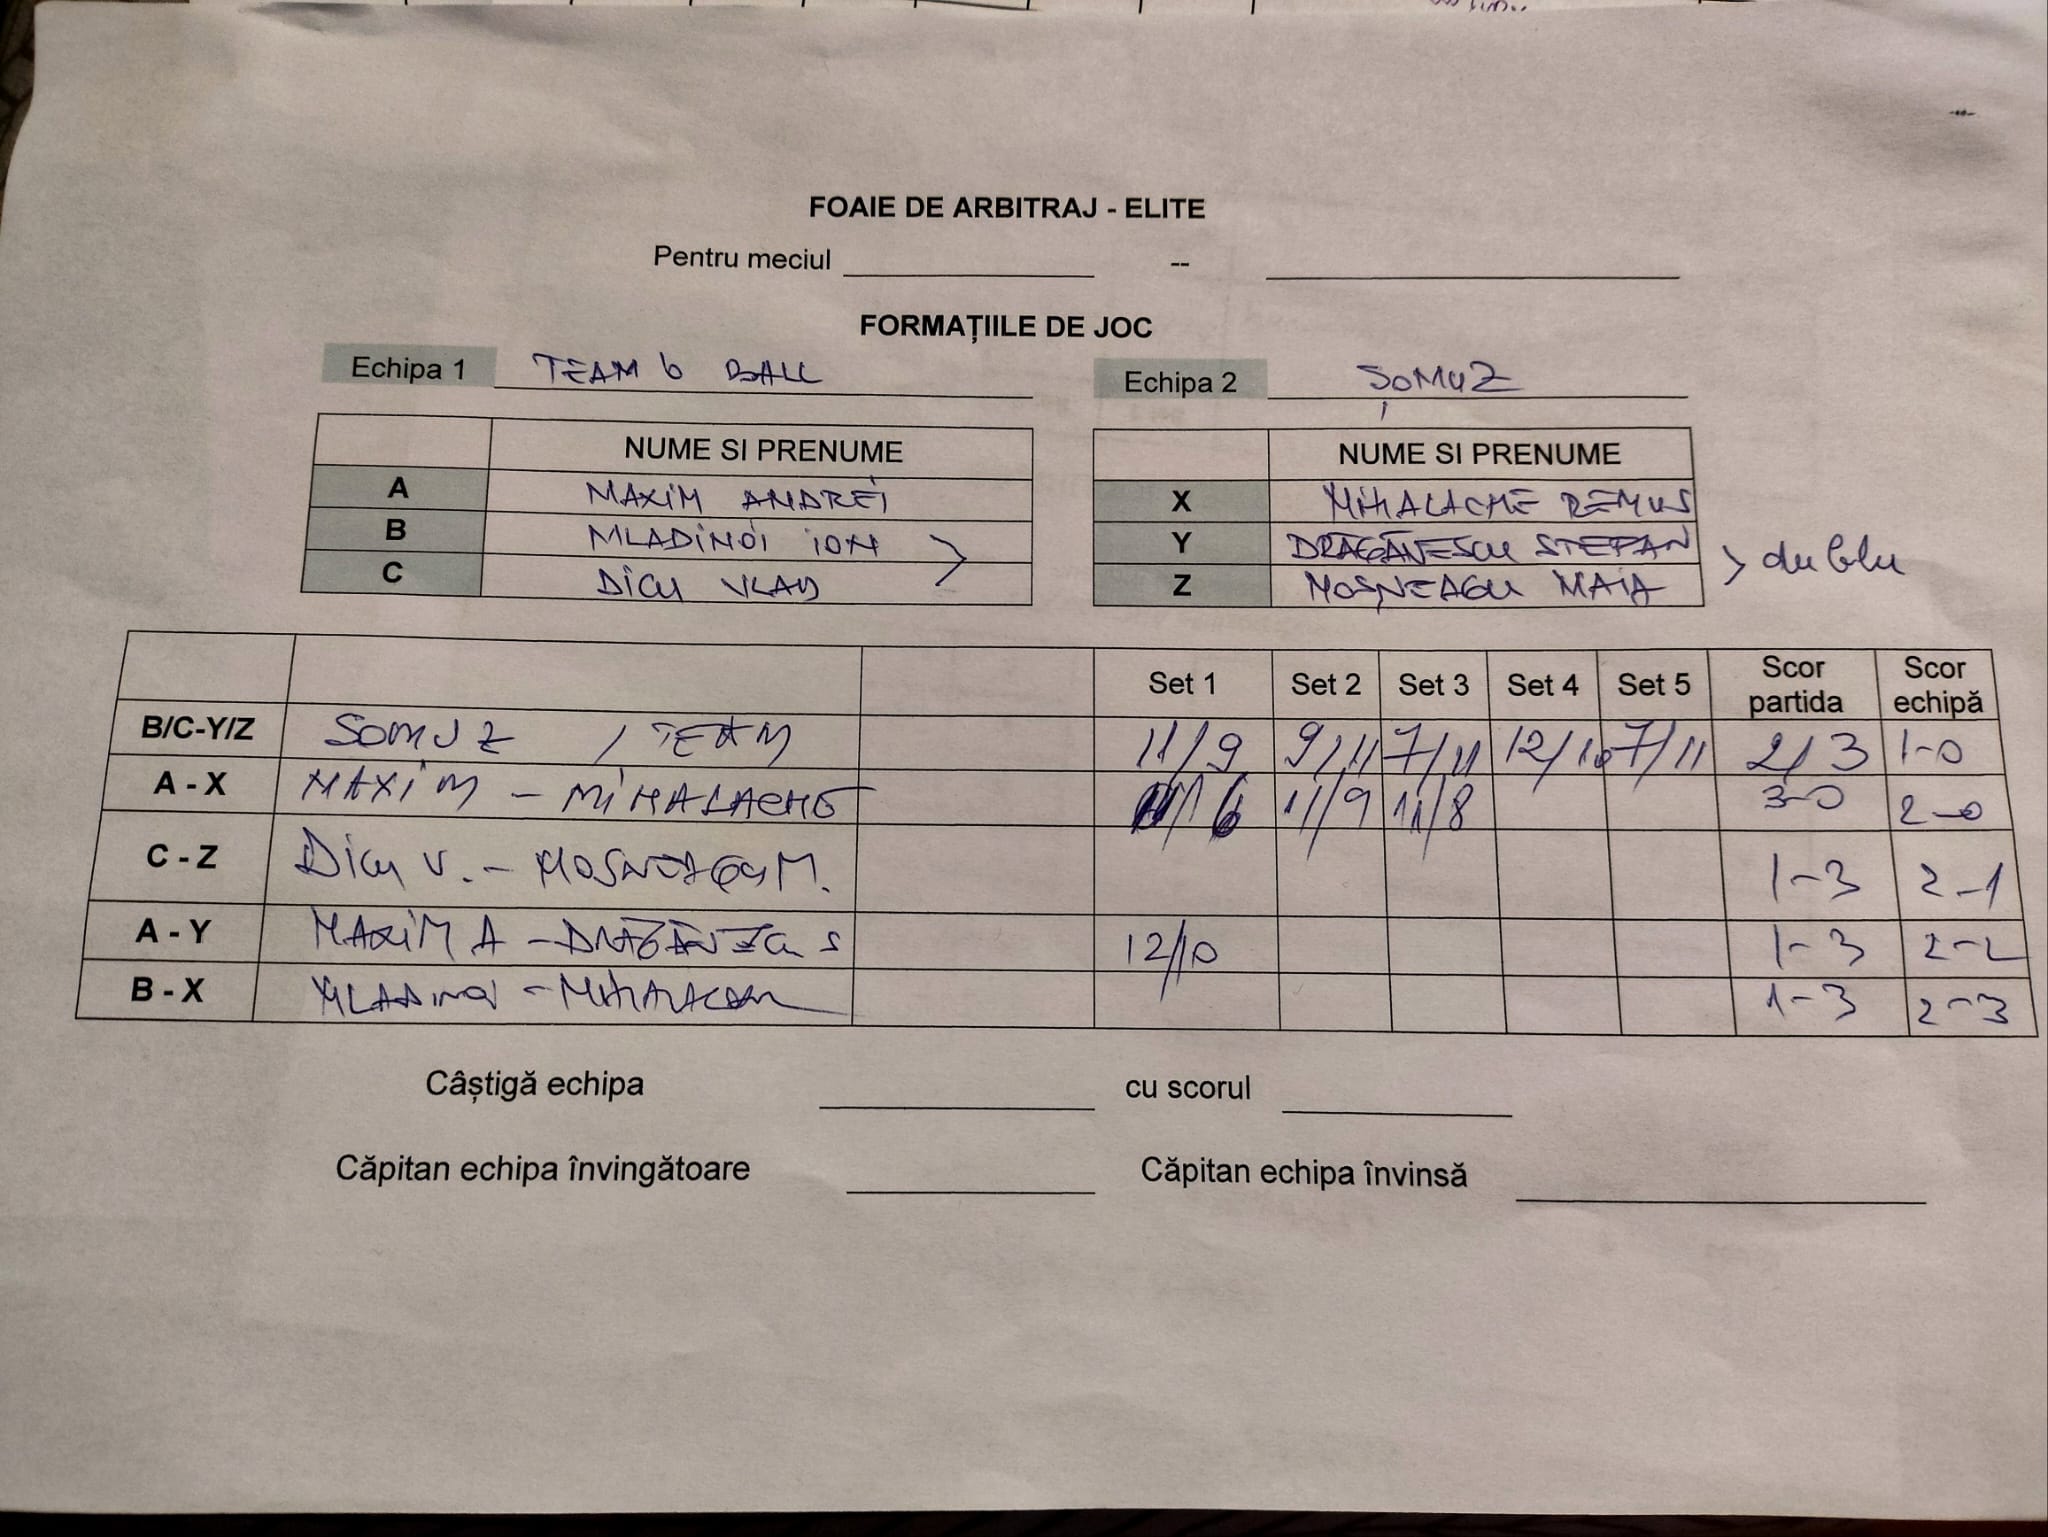 FOAIE DE ARBITRAJ - ELITE
Pentru meciul --
FORMAȚIILE DE JOC
Echipa 1 TEAM 6 BALL Echipa 2 ȘOMUZ
NUME SI PRENUME NUME SI PRENUME
A MAXIM ANDREI X MIHALACHE REMUS
B MLADINOI ION Y DRAGĂNESCU STEFAN
C DICU VLAD Z MOȘNEAGU MAIA
> > dublu
Set 1 Set 2 Set 3 Set 4 Set 5 Scor partida Scor echipă
B/C-Y/Z SOMUZ / TEAM 11/9 9/11 7/11 12/10 7/11 2/3 1-0
A - X MAXIM - MIHALACHE 11/6 11/9 11/8 3-0 2-0
C - Z DICU V. - MOSNEAGU M. 1-3 2-1
A - Y MAXIM A - DRAGĂNESCU S 12/10 1-3 2-2
B - X MLADINOI - 1-3 2-3
Câștigă echipa cu scorul
Căpitan echipa învingătoare Căpitan echipa învinsă